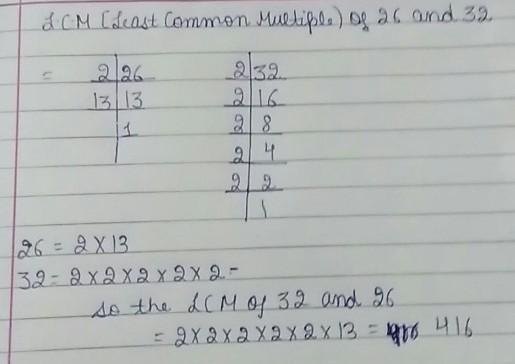 LCM (Least Common Multiple) of 26 and 32
= 2 | 26 2 | 32
13 | 13 2 | 16
1 2 | 8
2 | 4
2 | 2
1
26 = 2 × 13
32 = 2 × 2 × 2 × 2 × 2 -
so the LCM of 32 and 26
= 2 × 2 × 2 × 2 × 2 × 13 = 416